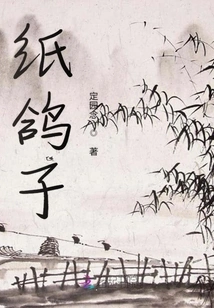 纸鸽子
定园念
著